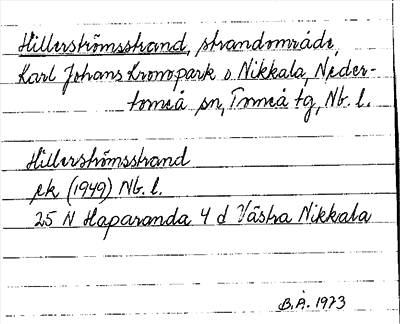 Hillerströmsstrand, strandområde,
Karl Johans Kronopark o. Nikkala, Neder-
torneå sn, Torneå tg, Nb. l.
Hillerströmsstrand
ek (1949) Nb. l.
25 N Haparanda 4 d Västra Nikkala
B.Å. 1973